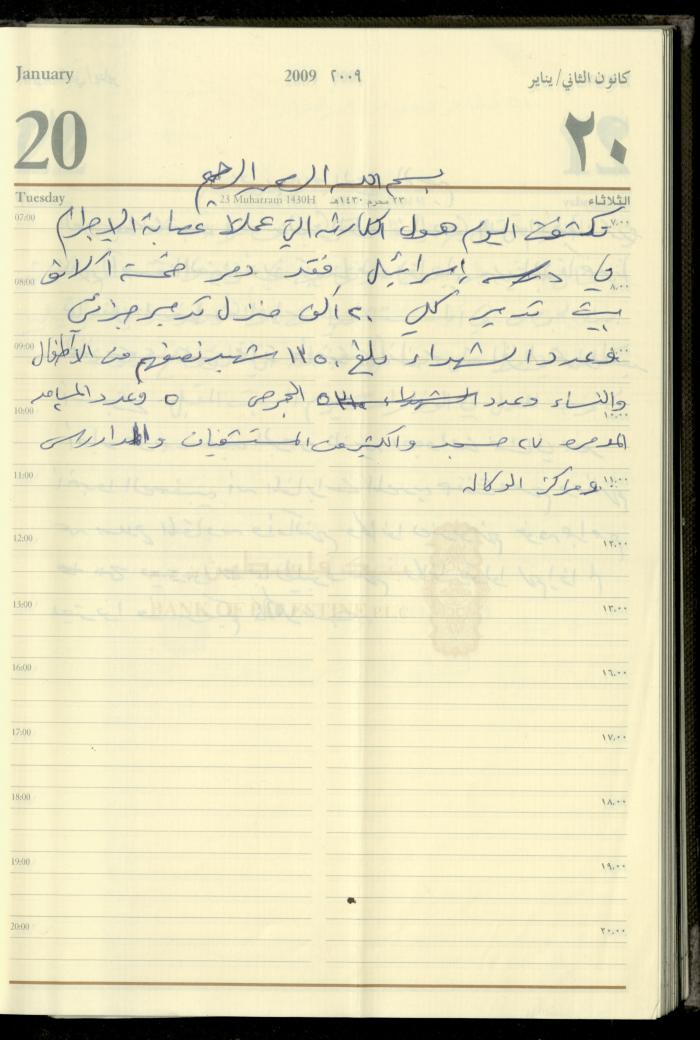 January 2009 ٢٠٠٩ كانون الثاني/يناير
20 ٢٠
بسم الله الرحمن الرحيم
Tuesday 23 Muharram 1430H ٢٣ محرم ١٤٣٠هـ الثلاثاء
07:00 ٧:٠٠
تكشفت اليوم هول الكارثه التي عملا عصابة الإجرام
في إسرائيل فقد دمر خمسة آلاف
08:00 ٨:٠٠
بيت تدمير كلي ٢٠ ألف منزل تدمير جزئي
09:00 ٩:٠٠
وعدد الشهداء بلغ ١٣٥٠ شهيد نصفهم من الأطفال
والنساء وعدد الجرحى ٥ وعدد المساجد
10:00 ١٠:٠٠
المدمره ٢٧ مسجد والكثير من المستشفيات والمدارس
11:00 ١١:٠٠
ومراكز الوكاله
12:00 ١٢:٠٠
BANK OF PALESTINE PLC
13:00 ١٣:٠٠
16:00 ١٦:٠٠
17:00 ١٧:٠٠
18:00 ١٨:٠٠
19:00 ١٩:٠٠
20:00 ٢٠:٠٠